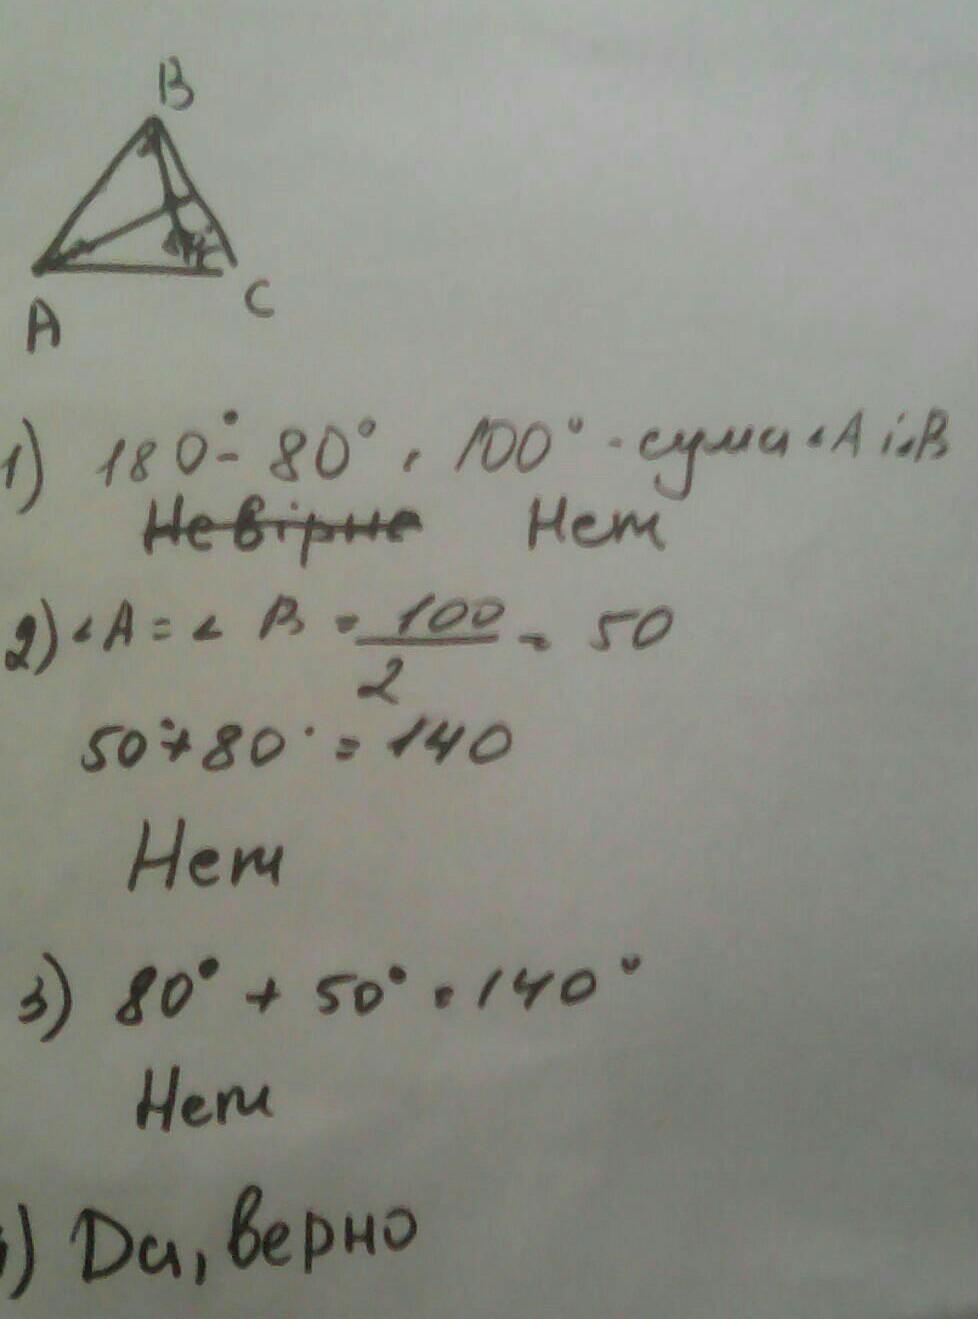 B
A
C
1) 180° - 80° = 100° - сума ∠A i ∠B
Невірне Нет
2) ∠A = ∠B = 100/2 = 50
50° + 80° = 140
Нет
3) 80° + 50° = 140°
Нет
) Да, верно